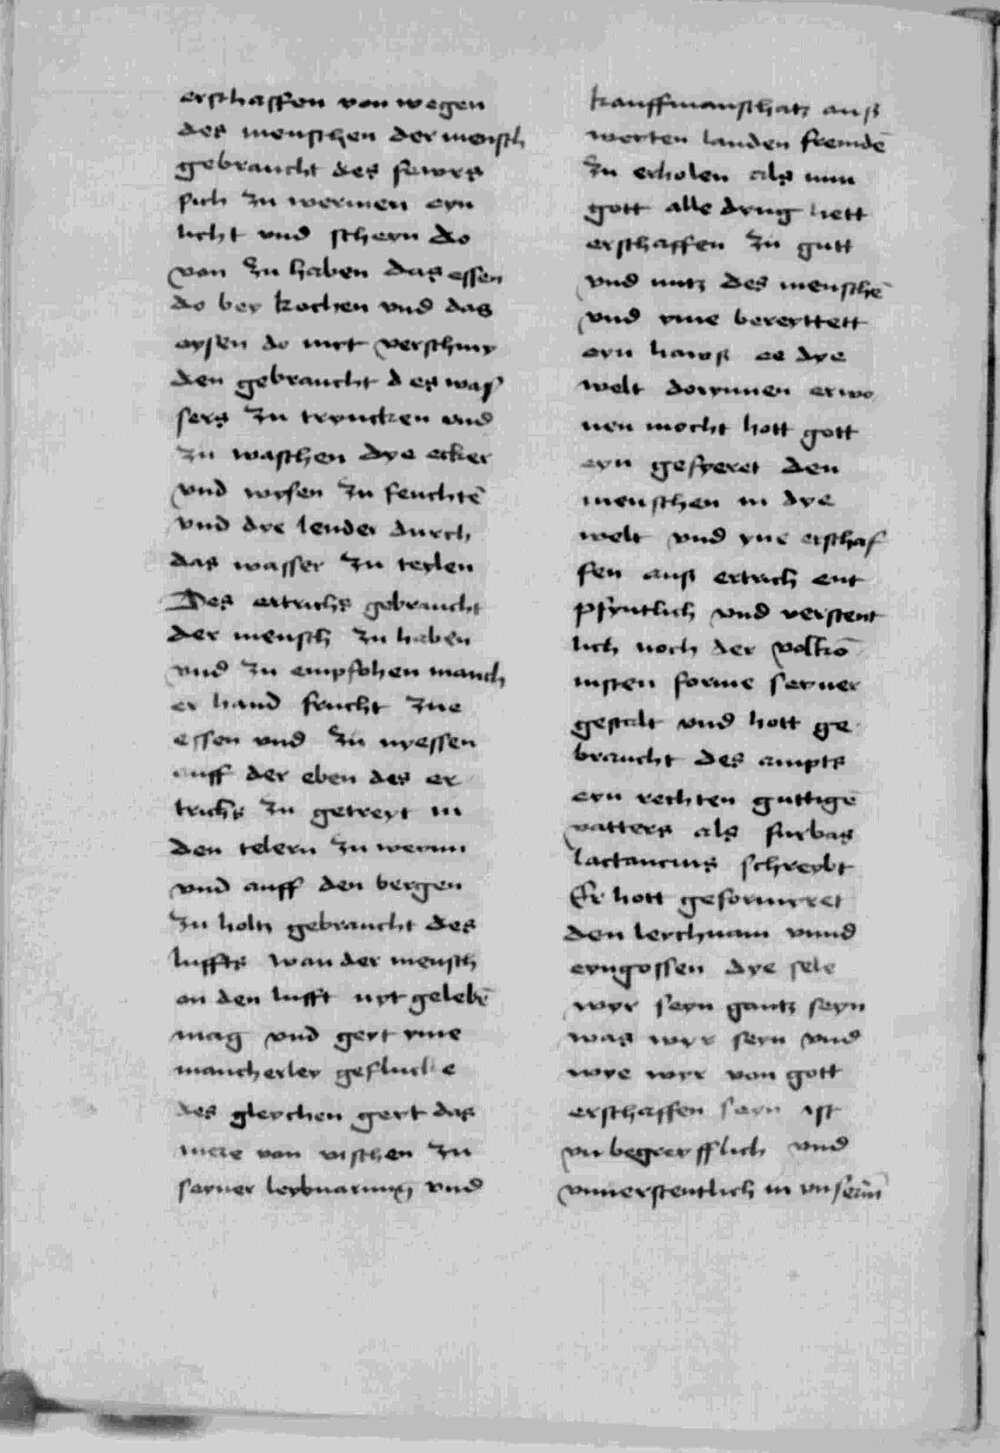 erschaffen von wegen
des menschen der mensch
gebraucht des fewrs
sich zu wermen eyn
licht vnd scheyn do
von zu haben das essen
do bey kochen vnd das
eysen do mit verschmy
den gebraucht des was
sers zu tryncken vnd
zu waschen dye ecker
vnd wysen zu feuchtē
vnd dye lender durch
das wasser zu teylen
Des ertrichs gebraucht
der mensch zu haben
vnd zu empfohen manch
er hand frucht zue
essen vnd zu nyessen
auff der eben des er
trichs zu getreyt in
den telern zu weynn
vnd auff den bergen
zu holtz gebraucht des
luffts wan der mensch
on den lufft nyt gelebē
mag vnd geyt yme
mancherley gefluck e
des gleychen geyt das
mere von vischen zu
seyner leybnarung vnd
kauffmanschatz auß
werten landen fremdē
zu erholen als nun
gott alle dyng hett
erschaffen zu gutt
vnd nutz des menschē
vnd yme bereyttett
eyn hawß ee dye
welt dorynnen erwo
nen mocht hott gott
eyn gefyeret den
menschen in dye
welt vnd yne erschaf
fen auß ertrich ent
pfyntlich vnd verstent
lich noch der volkō
nisten forme seyner
gestalt vnd hott ge
braucht des ampts
eyn rechten guttigē
vatters als furbas
lactancius schreybt
Er hott geformyret
den leychnam vnnd
eyngossen dye sele
wyr seyn gantz seyn
was wyr seyn vnd
wye wyr von gott
erschaffen seyn ist
vnbegreyfflich vnd
vnuerstentlich in vnserm̄